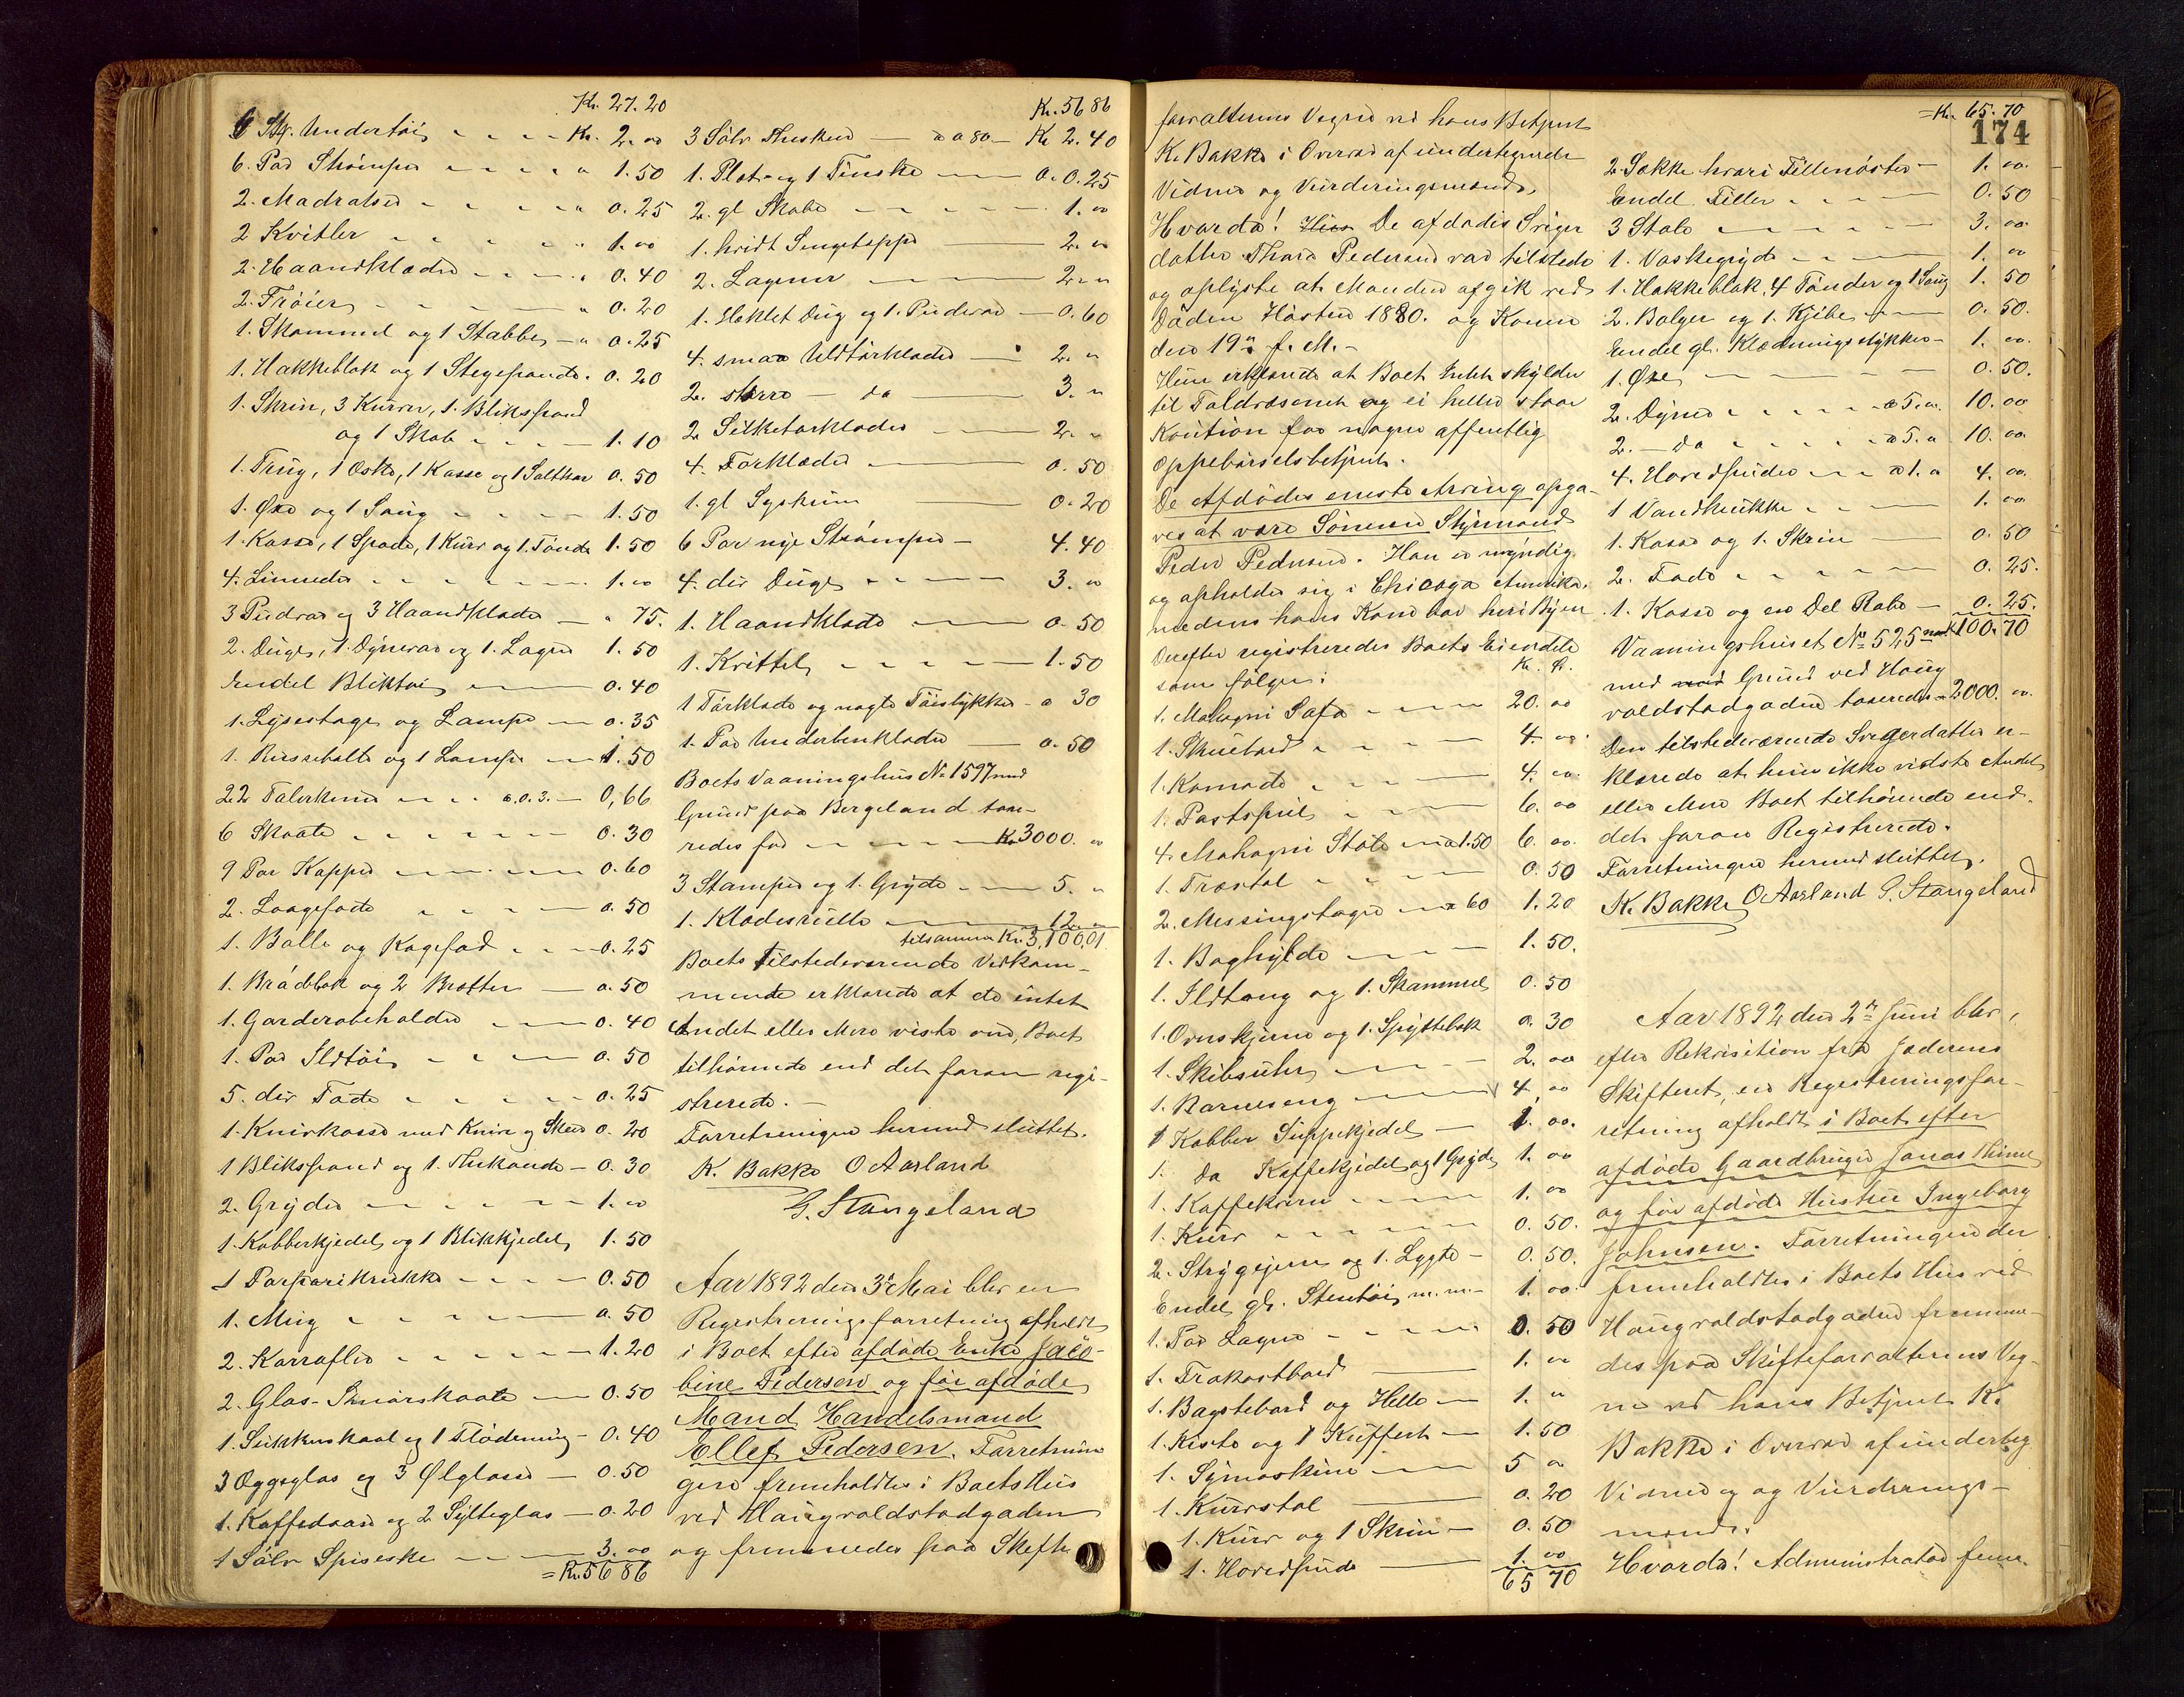 Kr. 27.20
6 Stk. Undertøi - - - - Kr. 2. 00
6. Par Strømper - - - - " 1.50
2. Madratser - - - - " 0.25
2 Kvitler - - - - - " 1.00
2. Haandklæder - - - - " 0.40
2. Trøier - - - - " 0.20
1. Skammel og 1 Stabbe, - " 0.25
1. Hakkeblok og 1 Stegepande. 0.20
1. Skrin, 3 Kurver, 1. Blikspand
og 1 Skab - - - - 1.10
1. Trug, 1 Æske, 1 Kasse og 1 Saltkar 0.50
1. Øxe og 1 Saug - - - - 1.50
1. Kasse, 1 Spade, 1 Kurv og 1. Tønde 1.50
4. Linneder - - - - - 1.00
3 Pudevar og 3 Haandklæder — " 75.
2. Duge, 1. Dynevar og 1. Lagen 1.50
Endel Bliktøi — 0.40
1. Lysestage og Lampe — 0.35
1. Russebolle og 1 Lampe — 1.50
22 Talerkener - - - a. 0.3. — 0,66
6 Skaale - - - - - 0.30
9 Par Kopper — 0.60
2. Laagefade - - - - 0.50
1. Bolle og Kagefad - - - 0.25
1. Brødblok og 2 Bretter — 0.50
1. Garderobeholder — 0.40
1. Par Ildtøi - - - 0.50
5. div Fade - - - - 0.25
1. Knivkasse med Knive og Skeer 0.20
1 Blikspand og 1. Thekande — 0.30
2. Gryder - - - - - 1.00
1. Kobberkjedel og 1 Blikkjedel, 1.50
1 Parparikrukke - - - 0.50
1. Mug - - - - 0.50
2. Karrafler - - - - 1.20
2. Glas-Smørskaale — 0.50
1. Sukkerskaal og 1 Flødemug - 0.40
3 Æggeglas og 3 Ølglase — 0.50
1. Kaffedaase og 2 Sylteglas — 0.20
1 Sølv Spiseske — 3.00
= Kr. 56 86
Kr. 56 86
3 Sølv Theskeer — a 80 — Kr 2.40
1. Plet- og 1 Tinske — 0. 0.25
2. gl Skabe - - - - - 1.00
1. hvidt Sengeteppe — 2. 00
2. Lagener — 2. "
1. Heklet Dug og 1. Pudevar — 0.60
4. smaa Uldtørklæder — 2. "
2. større — do — 3. "
2 Silketørklæder — 2. "
4. Forklæder — 0.50
1. gl Syskrin — 0.20
6 Par nye Strømper — 4.40
4. div Duge - — 3. 00
1. Haandklæde — 0.50
1. Kvittel, - - - - 1.50
1 Tørklæde og nogle Tøistykker - 0 30
1. Par Underbenklæder — 0.50
Boets Vaaningshus No 1597 med
Grund paa Bergeland taxe-
redes for - - - - Kr 3000. 00
3 Stamper og 1. Gryde — 5. "
1. Klæderulle — 12. 00
tilsammen Kr. 3,100,01
Boets tilstedeværende Vedkom-
mende erklærede at de intet
Andet eller Mere viste om, Boet
tilhørende end det foran regi-
strerede. —
Forretningen hermed sluttet.
K. Bakke O Aarland
G. Stangeland
Aar 1892 den 3. Mai blev en
Registreringsforretning afholdt
i Boet efter afdøde Enke Jaco-
bine Pedersen og før afdøde
Mand Handelsmand
Ellef Pedersen. Forretnin-
gen fremholdtes i Boets Hus
ved Haugvaldstadgaden
og fremmedes paa Skifte
forvalterens Vegne ved hans Betjent
K. Bakke i Overvær af undertegnede
Vidner og Vurderingsmænd,
Hvorda! De afdødes Sviger
datter Thora Pedersen var tilstede
og oplyste at Manden afgik ved
Døden Høsten 1880. og Konen
den 19de f. M. —
Hun erklærede at Boet Intet skylder
til Toldvæsenet og ei heller staar
Kaution for nogen offentlig
Oppebørselsbetjent.
De Afdødes eneste Arving opga-
ves at være Sønnen Styrmand
Peder Pedersen. Han er myndig
og opholder sig i Chicago Amerika,
medens hans Kone bor her i Byen
Derefter registreredes Boets Eiendele
som følger: Kr. Ø.
1. Mahogni Sofa - - - - 20. 00
1. Skuebord - - - - 4. 00
1. Komode - - - 4. 00.
1. Partspil - - - 6. 00
4. Mahogni Stole — a 1.50 6. 00.
1. Træstol - - - - 0.50
2. Messingstager — a 60 1.20
1. Boghylde — 1.50.
1. Ildtang og 1. Skammel 0.50
1. Ovnskjerm og 1. Spyttebak 0.30
1. Skibsuhr, — 2. 00
1. Barneseng — 4, 00
1 Kobber Suppekjedel — 1. 00.
1. do Kaffekjedel og 1 Gryde, 1. 00
1. Kaffekvern - - - - 1. 00
1. Kurv - - - - 0.50.
2. Strygejern og 1. Lygte — 0.50.
Endel gl. Stentøi m. m. — 1. 00.
1. Par Lagen - - - - 0.50
1. Frokostbord — 1. 00
1. Bagstebord og Helle — 1. "
1. Kiste og 1 Kuffert — 1.50
1. Symaskine — 5 00
1. Kurvstol — 0.20
1. Kurv og 1 Skrin — 0.50
1. Hovedpude — 1. 00
65 70
= Kr. 65.70
174
2. Sække hvori Tillenøster — 1. 00.
Endel Filler - - - - 0.50
3 Stole - - - - - 3. 00
1. Vaskegryde - - - 1. 00
1. Hakkeblok, 4 Tønder og 1 Saug 1.50
2. Balger og 1. Kjibe, — 0.50.
Endel gl. Klædningsstykker — 1. 00.
1. Øxe, — 0.50.
2. Dyner - - - - a 5. 00. 10. 00
2. — do - - - - a 5. " 10. 00.
4. Hovedpuder — a 1. " 4. 00.
1 Vandkrukke - - — 1. 00.
1. Kasse og 1. Skrin — 0.50
2. Fade - - - — 0.25.
1. Kasse og en Del Rabe — 0.25.
Kr. 100.70
Vaaningshuset No 525
med Grund ved Haug
valdstadgaden taxeredes = 2000. 00.
Den tilstedeværende Svigerdatter er-
klærede at hun ikke vidste Andet,
eller Mere Boet tilhørende end
det foran Registrerede.
Forretningen hermed sluttet.
K. Bakke O Aarland G. Stangeland
Aar 1892 den 2den Juni blev,
efter Rekvisition fra Jæderens
Skifteret, en Registreringsfor-
retning afholdt i Boet efter
afdøde Gaardbruger Jonas Thime
og før afdøde Hustru Ingeborg
Johnsen. Forretningen der
fremholdtes i Boets Hus ved
Haugvaldstadgaden fremme-
des paa Skifteforvalterens Veg-
ne ved hans Betjent K.
Bakke i Overvær af underteg
Vidner og Vurderings-
mænd.
Hvorda! Administrator frem-